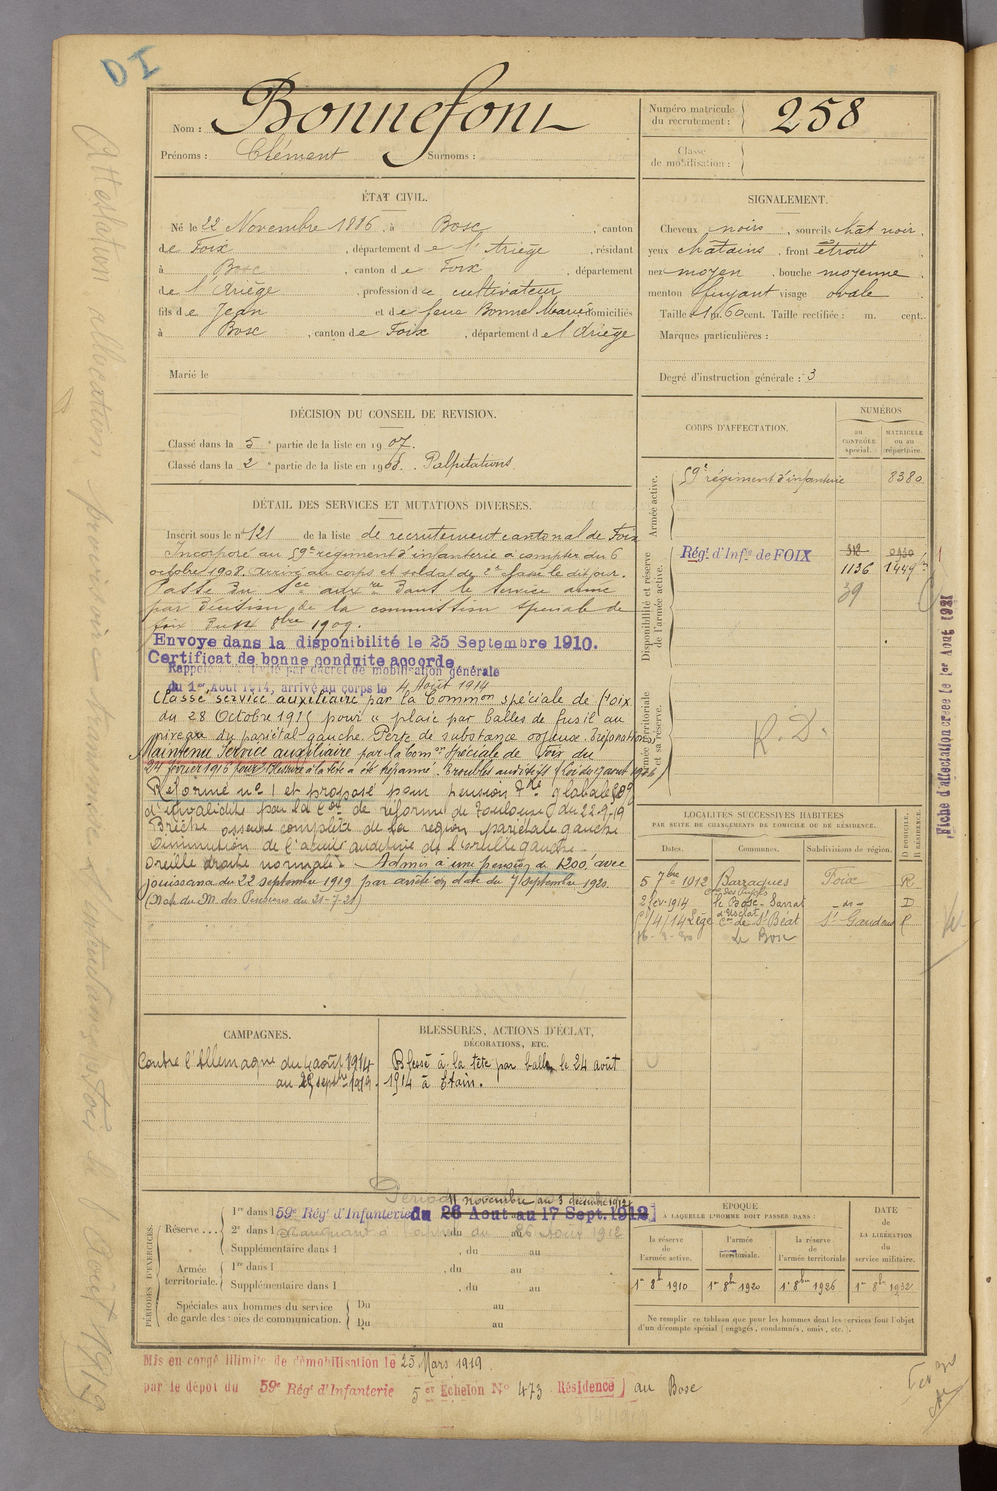 DI
Nom : Bonnefont
Prénoms : Clément Surnoms :
Numéro matricule du recrutement : 258
Classe de mobilisation :
ÉTAT CIVIL.
Né le 22 Novembre 1886, à Bosc, canton
de Foix, département de l'Ariège, résidant
à Bosc, canton de Foix, département
de l'Ariège, profession de cultivateur
fils de Jean et de feue Bonnel Marie domiciliés
à Bosc, canton de Foix, département de l'Ariège
Marié le
SIGNALEMENT.
Cheveux noirs, sourcils chât noir,
yeux châtains, front étroit
nez moyen, bouche moyenne
menton fuyant visage ovale
Taille 1 m. 60 cent. Taille rectifiée : m. cent.
Marques particulières :
Degré d'instruction générale : 3
DÉCISION DU CONSEIL DE REVISION.
Classé dans la 5e partie de la liste en 1907.
Classé dans la 2e partie de la liste en 1908. Palpitations.
DÉTAIL DES SERVICES ET MUTATIONS DIVERSES.
Inscrit sous le n° 121 de la liste de recrutement cantonal de Foix
Incorporé au 59e régiment d'infanterie à compter du 6
octobre 1908. Arrivé au corps et soldat de 2e classe le dit jour.
Passé du sce auxre dans le service armé
par décision de la commission spéciale de
Foix du 8bre 1909.
Envoyé dans la disponibilité le 25 Septembre 1910.
Certificat de bonne conduite accordé
Rappelé par décret de mobilisation générale
du 1er Août 1914, arrivé au corps le 4 Août 1914
Classé service auxiliaire par la Common spéciale de Foix
du 28 Octobre 1915 pour "plaie par balles de fusil au
niveau du pariétal gauche. Perte de substance osseuse.
Maintenu Service auxiliaire par la Comon Spéciale de Foix du
24 février 1916 pour Blessure à la tête a été trépanné. Troubles auditifs
Réformé n° 1 et proposé pour pension
d'invalidité par la de réforme de Toulouse du 22-9-19
Brèche osseuse complète de la région pariétale gauche
Diminution de l'acuité auditive de l'oreille gauche
Oreille droite normale. Admis à une pension de 1200f avec
jouissance du 22 septembre 1919 par arrêté en date du 7 septembre 1920.
du M. des Pensions du 21-7-21)
CORPS D'AFFECTATION.
NUMÉROS
AU CONTRÔLE spécial.
MATRICULE ou au répertoire.
Armée active.
59e régiment d'infanterie 8380
Disponibilité et réserve de l'armée active.
Régt d'Infie de FOIX
1136
39
Armée territoriale et sa réserve.
R. D.
LOCALITÉS SUCCESSIVES HABITÉES
PAR SUITE DE CHANGEMENTS DE DOMICILE OU DE RÉSIDENCE.
Dates. Communes. Subdivisions de région. D DOMICILE, R RÉSIDENCE.
5 7bre 1912 Barraques Foix R
2 fév. 1914 le Bosc - Sarrat -id- D
4/14 Lège Con de St Béat St Gaudens R
Le Bosc
CAMPAGNES.
Contre l'Allemagne du 4 août 1914
au septbre 1919.
BLESSURES, ACTIONS D'ÉCLAT,
DÉCORATIONS, ETC.
Blessé à la tête par balle le 24 août
1914 à Etain.
PÉRIODES D'EXERCICES.
Réserve ...
1re dans l 59e Régt d'Infanterie du 26 Aout au 17 Sept. 1912
novembre au 3 décembre 1912
2e dans l , du au
Supplémentaire dans l , du au
Armée territoriale.
1re dans l , du au
Supplémentaire dans l , du au
Spéciales aux hommes du service de garde des voies de communication.
Du au
Du au
ÉPOQUE
À LAQUELLE L'HOMME DOIT PASSER DANS :
la réserve de l'armée active.
l'armée territoriale.
la réserve de l'armée territoriale
DATE DE LA LIBÉRATION du service militaire.
1er 8bre 1910 1er 8bre 1920 1er 8bre 1926 1er 8bre 1932
Ne remplir ce tableau que pour les hommes dont les services font l'objet
d'un décompte spécial (engagés, condamnés, omis, etc.).
Mis en congé illimité de démobilisation le 25 Mars 1919
par le dépôt du 59e Régt d'Infanterie 5e Echelon N° 473 Résidence) au Bosc
Fiche d'affectation créée le 1er Août 1921
Attestation allocation provisoire